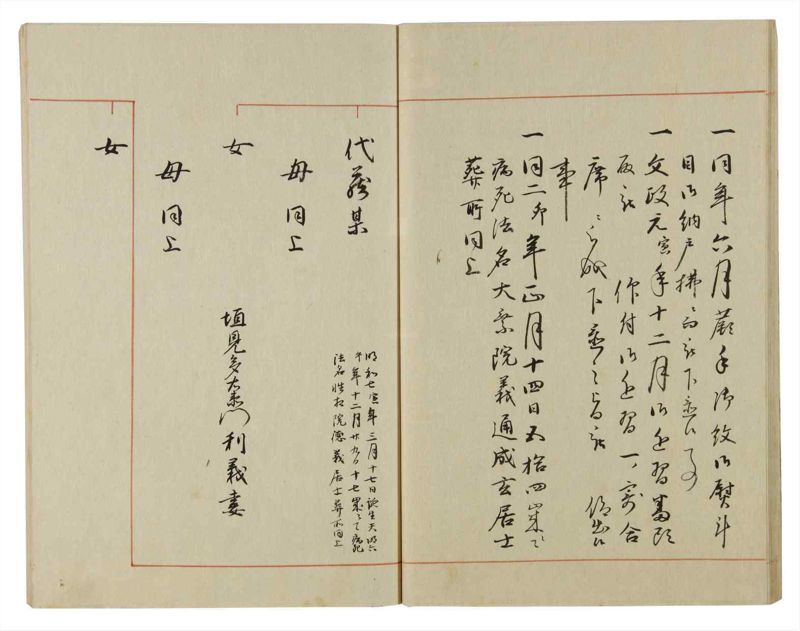 一同年六月蕨手御紋御熨斗
目御納戸拂ニ而被下置候事
一文政元寅年十二月御近習番頭
被 仰付御近習一寄合
席ニ
下置候旨被 仰出候
事
一同二卯年正月十四日五拾四歳ニ而
病死法名大乗院義通成玄居士
葬所同上
代蔵某
明和七寅年三月十七日誕生天明六
午年十二月廿九日十七歳ニて病死
法名性相院徳義居士葬所同上
母同上
女
垣見多右衛門利義妻
母同上
女